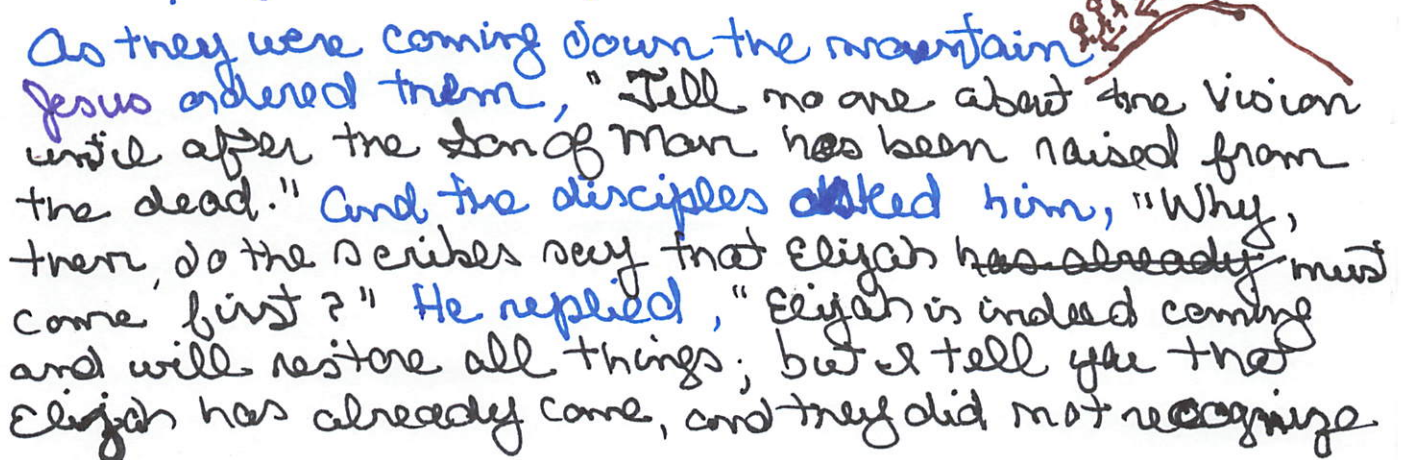 As they were coming down the mountain
Jesus ordered them, "Tell no one about the vision
until after the Son of Man has been raised from
the dead." And the disciples asked him, "Why,
then, do the scribes say that Elijah has already must
come first?" He replied, "Elijah is indeed coming
and will restore all things; but I tell you that
Elijah has already come, and they did not recognize